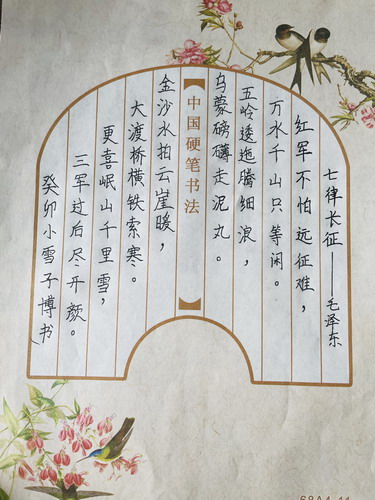 七律长征——毛泽东
红军不怕远征难，
万水千山只等闲。
五岭逶迤腾细浪，
乌蒙磅礴走泥丸。
中国硬笔书法
金沙水拍云崖暖，
大渡桥横铁索寒。
更喜岷山千里雪，
三军过后尽开颜。
癸卯小雪子博书